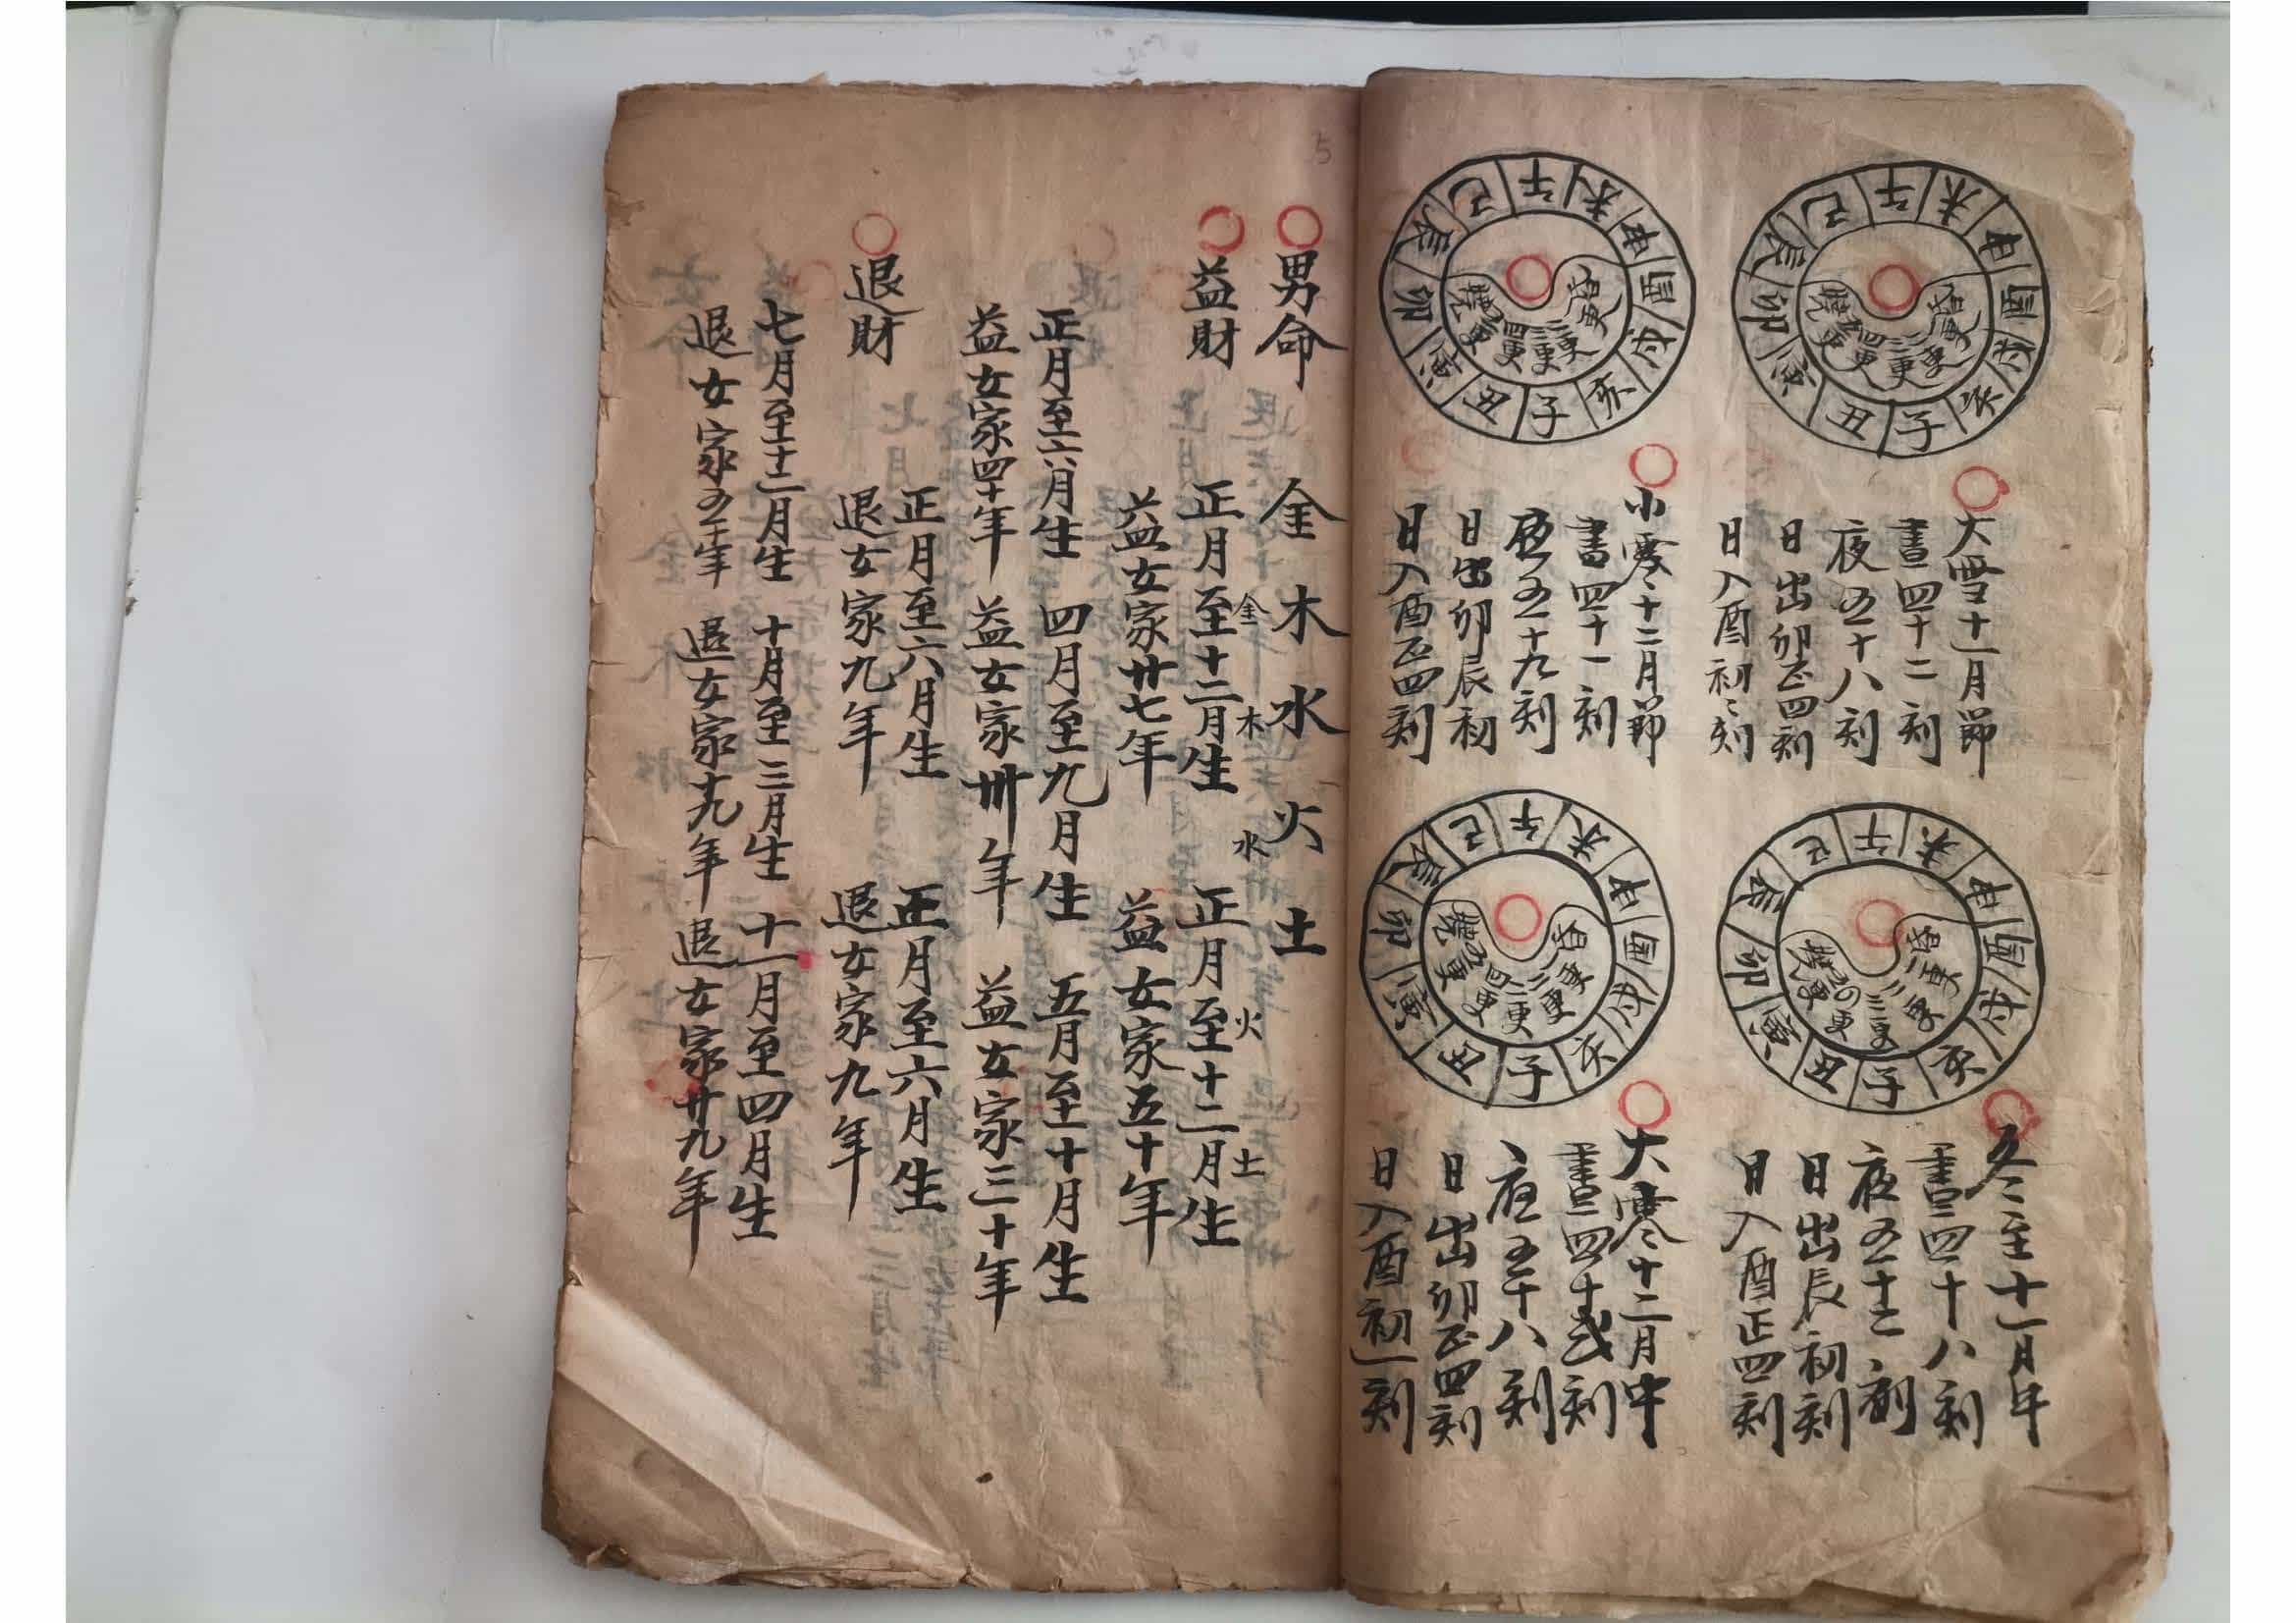 未
午
巳
辰
卯
寅
丑
子
亥
戌
酉
申
昏
一更
二更
三更
四更
五更
大雪十一月節
晝四十二刻
夜五十八刻
日出卯正四刻
日入酉初〻刻
未
午
巳
辰
卯
寅
丑
子
亥
戌
酉
申
昏
一更
二更
三更
四更
五更
冬至十一月中
晝四十八刻
夜五十二刻
日出辰初刻
日入酉正四刻
未
午
巳
辰
卯
寅
丑
子
亥
戌
酉
申
昏
一更
二更
三更
四更
五更
小寒十二月節
晝四十一刻
夜五十九刻
日出卯辰初
日入酉正四刻
未
午
巳
辰
卯
寅
丑
子
亥
戌
酉
申
昏
一更
二更
三更
四更
五更
大寒十二月中
晝四十弍刻
夜五十八刻
日出卯正四刻
日入酉初一刻
5
男命 金 木 水 火 土
金 木 水 火 土
益財 正月至十二月生 正月至十二月生
益女家廿七年 益女家五十年
正月至六月生 四月至九月生 五月至十月生
益女家四十年 益女家卅年 益女家三十年
退財 正月至六月生 正月至六月生
退女家九年 退女家九年
七月至十二月生 十月至三月生 十一月至四月生
退女家五十年 退女家十九年 退女家廿九年